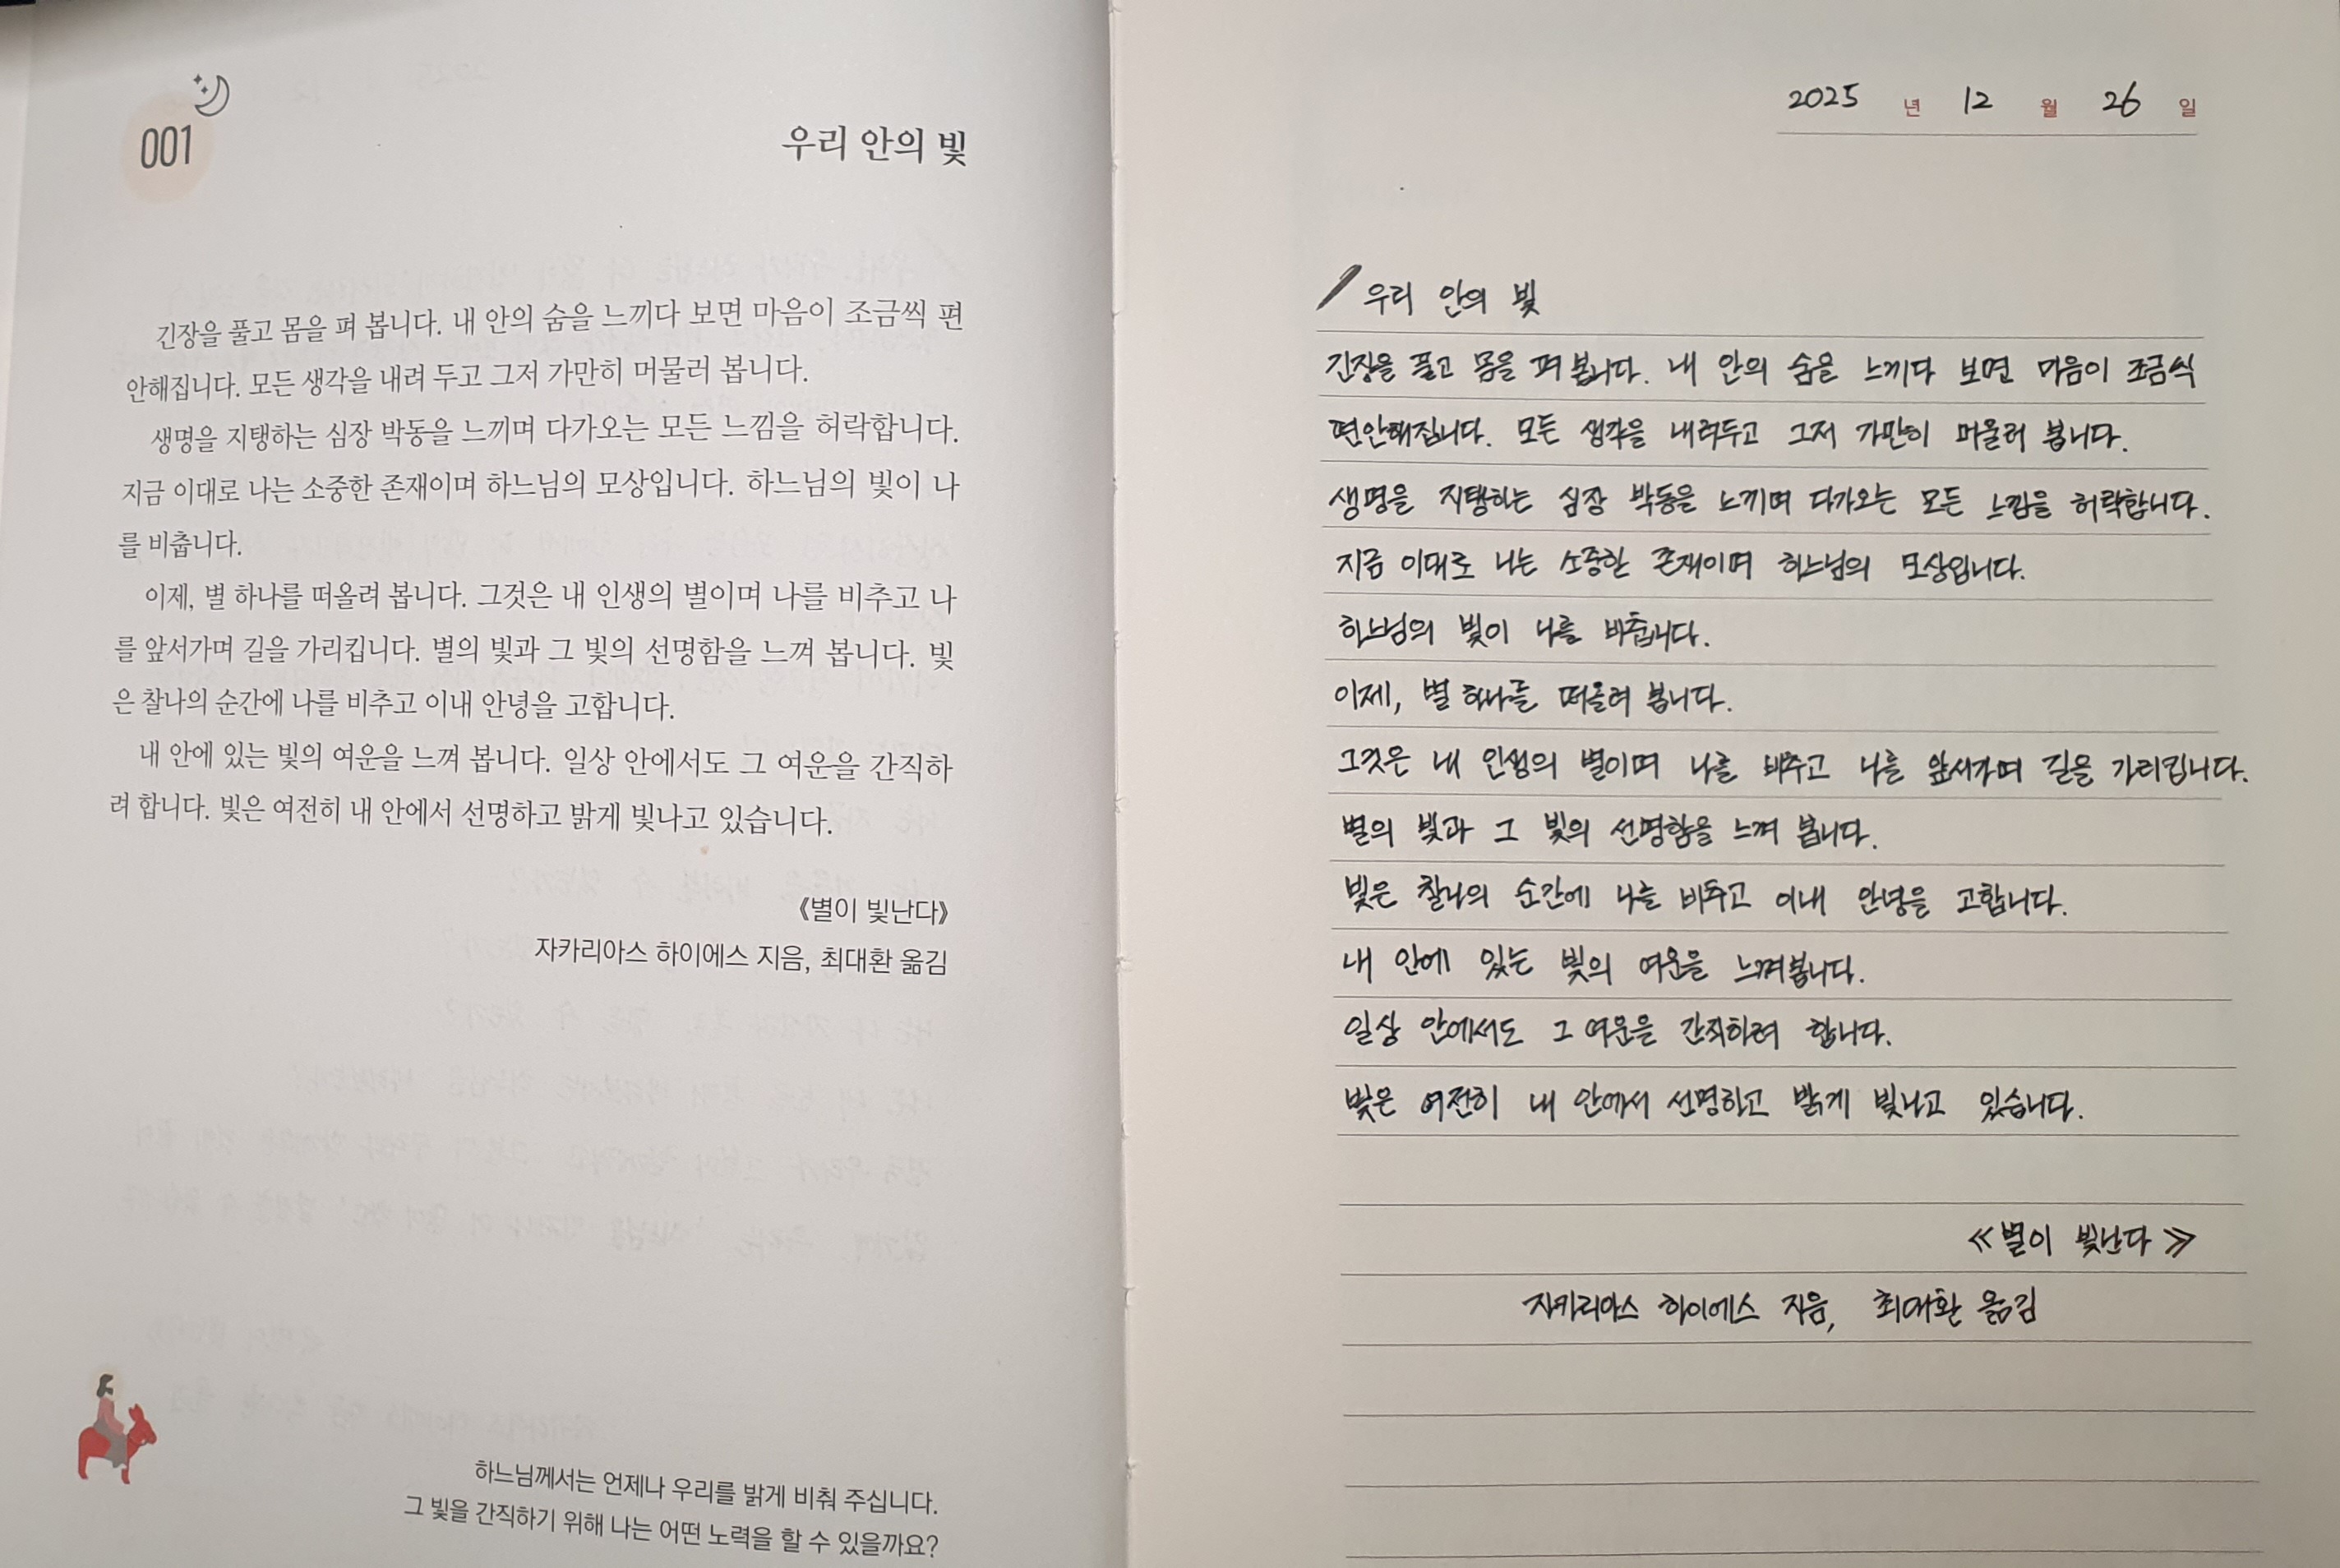 001
우리 안의 빛
긴장을 풀고 몸을 펴 봅니다. 내 안의 숨을 느끼다 보면 마음이 조금씩 편
안해집니다. 모든 생각을 내려 두고 그저 가만히 머물러 봅니다.
생명을 지탱하는 심장 박동을 느끼며 다가오는 모든 느낌을 허락합니다.
지금 이대로 나는 소중한 존재이며 하느님의 모상입니다. 하느님의 빛이 나
를 비춥니다.
이제, 별 하나를 떠올려 봅니다. 그것은 내 인생의 별이며 나를 비추고 나
를 앞서가며 길을 가리킵니다. 별의 빛과 그 빛의 선명함을 느껴 봅니다. 빛
은 찰나의 순간에 나를 비추고 이내 안녕을 고합니다.
내 안에 있는 빛의 여운을 느껴 봅니다. 일상 안에서도 그 여운을 간직하
려 합니다. 빛은 여전히 내 안에서 선명하고 밝게 빛나고 있습니다.
《별이 빛난다》
자카리아스 하이에스 지음, 최대환 옮김
하느님께서는 언제나 우리를 밝게 비춰 주십니다.
그 빛을 간직하기 위해 나는 어떤 노력을 할 수 있을까요?
2025 년 12 월 26 일
우리 안의 빛
긴장을 풀고 몸을 펴 봅니다. 내 안의 숨을 느끼다 보면 마음이 조금씩
편안해집니다. 모든 생각을 내려두고 그저 가만히 머물러 봅니다.
생명을 지탱하는 심장 박동을 느끼며 다가오는 모든 느낌을 허락합니다.
지금 이대로 나는 소중한 존재이며 하느님의 모상입니다.
하느님의 빛이 나를 비춥니다.
이제, 별 하나를 떠올려 봅니다.
그것은 내 인생의 별이며 나를 비추고 나를 앞서가며 길을 가리킵니다.
별의 빛과 그 빛의 선명함을 느껴 봅니다.
빛은 찰나의 순간에 나를 비추고 이내 안녕을 고합니다.
내 안에 있는 빛의 여운을 느껴봅니다.
일상 안에서도 그 여운을 간직하려 합니다.
빛은 여전히 내 안에서 선명하고 밝게 빛나고 있습니다.
≪별이 빛난다≫
자카리아스 하이에스 지음, 최대환 옮김